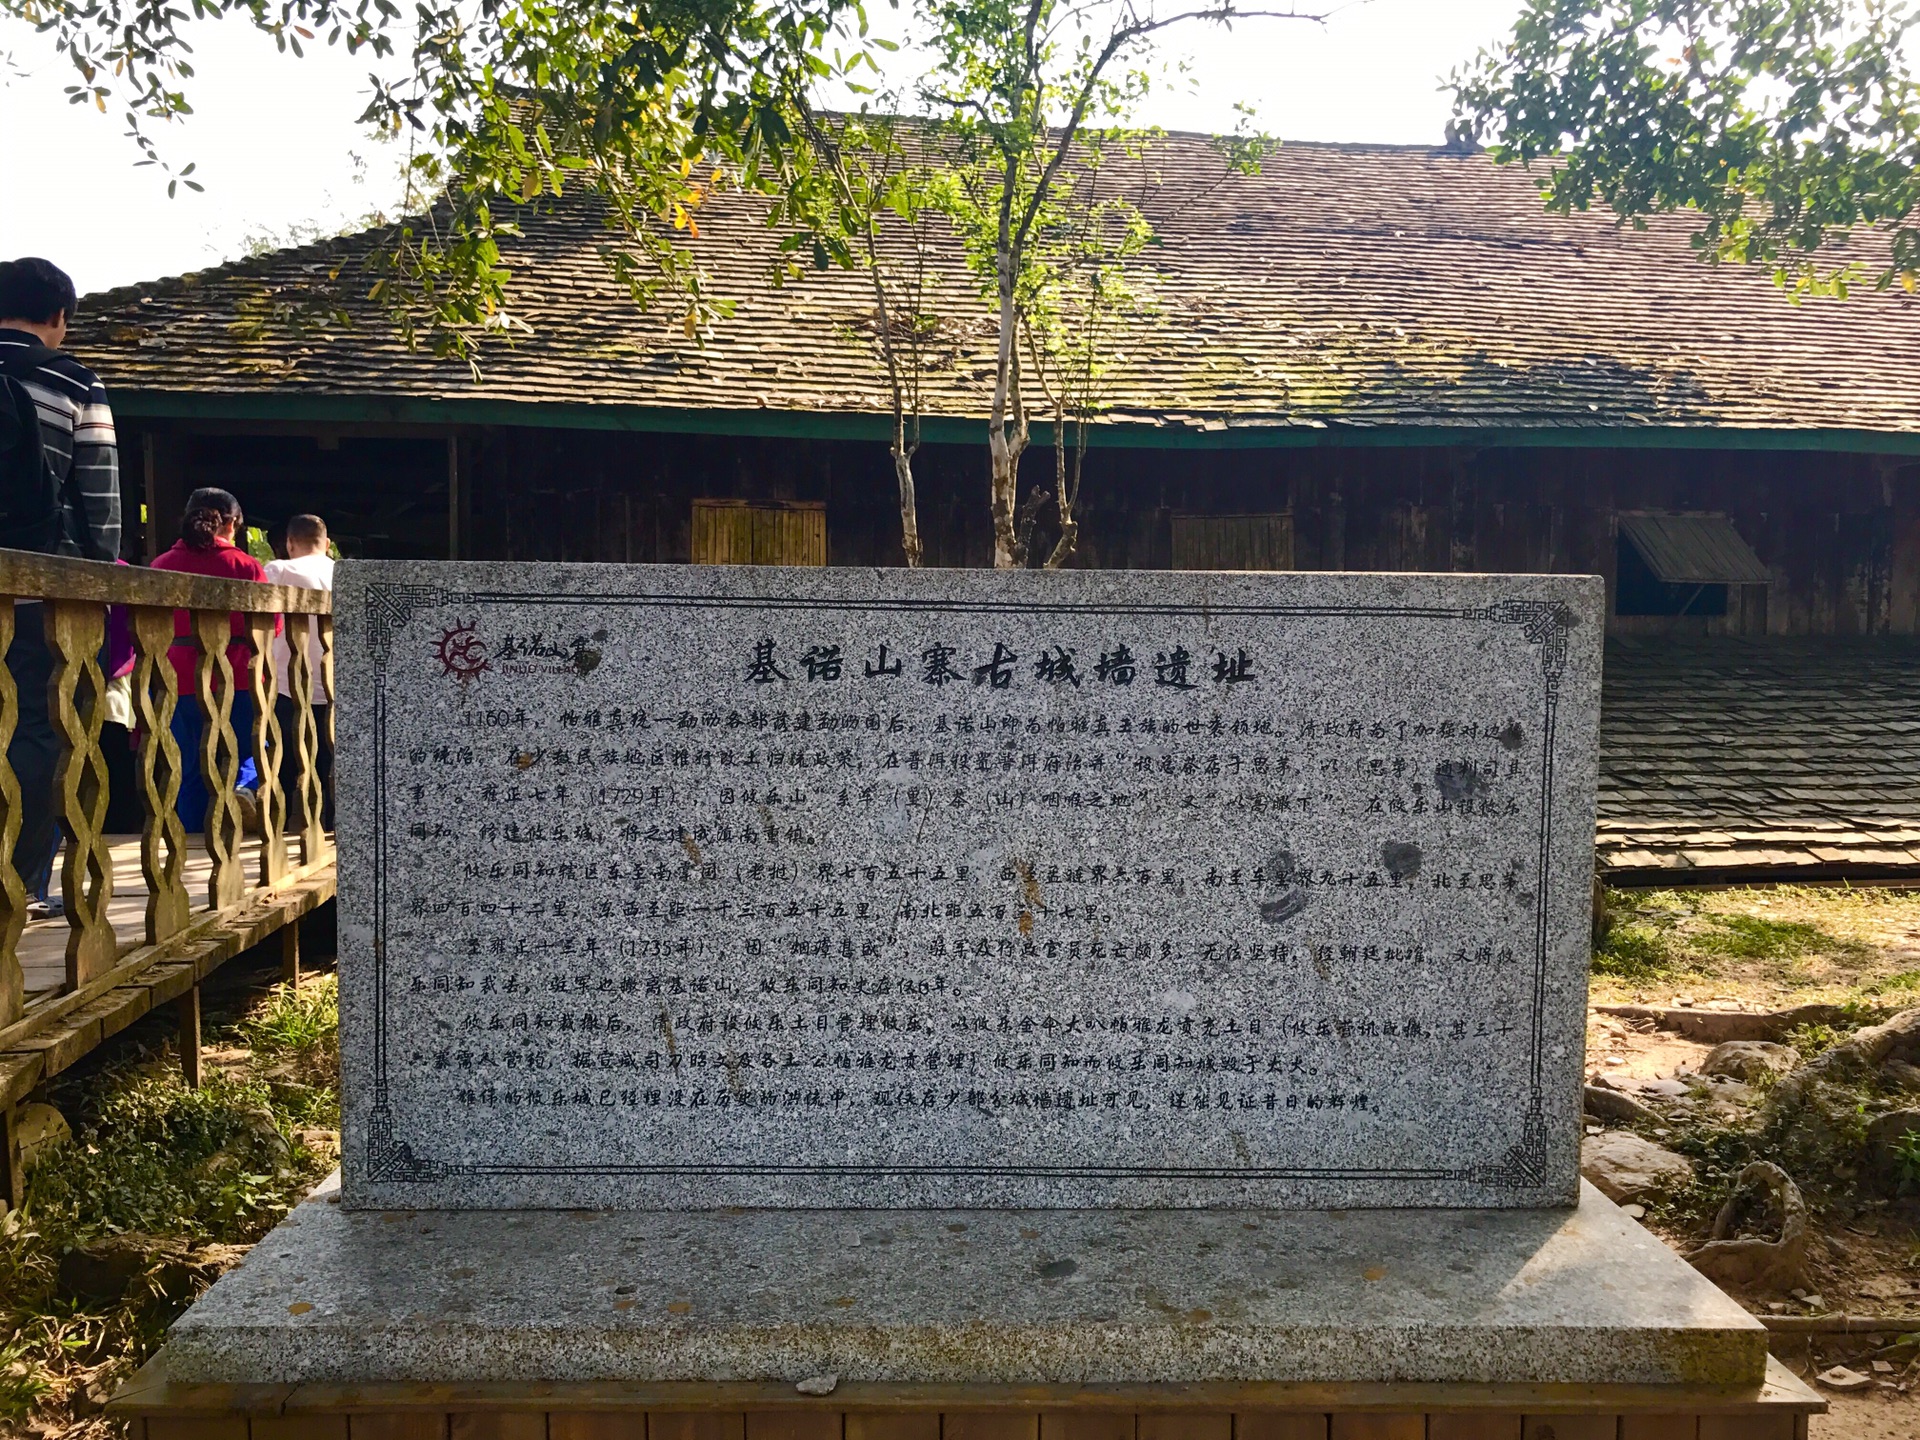 基诺山寨
JINUO VILLAGE
基诺山寨古城墙遗址
1160年，帕雅真统一勐泐各部落建勐泐国后，基诺山即为帕雅真王族的世袭领地。清政府为了加强对边疆
的统治，在少数民族地区推行改土归流政策，在普洱设置普洱府治并“设总茶店于思茅，以（思茅）通判司其
事”。雍正七年（1729年），因攸乐山“系车（里）茶（山）咽喉之地”，又“以高撖下”，在攸乐山设攸乐
同知，修建攸乐城，将之建成滇南重镇。
攸乐同知辖区东至南掌国（老挝）界七百五十五里，西至孟琏界六百里，南至车里界九十五里，北至思茅
界四百四十二里，东西至距一千三百五十五里，南北距五百三十七里。
至雍正十三年（1735年），因“烟瘴甚盛”，驻军及行政官员死亡颇多，无法坚持，经朝廷批准，又将攸
乐同知裁去，驻军也撤离基诺山，攸乐同知史存仅6年。
攸乐同知裁撤后，清政府设攸乐土目管理攸乐，以攸乐金伞大叭帕雅龙贡充土目（攸乐营汛既撤，其三十
八寨需人管约，据宣威司刀昭文及各土公帕雅龙贡管理）攸乐同知而攸乐同知城毁于大火。
雄伟的攸乐城已经埋没在历史的洪流中，现仅存少部分城墙遗址可见，还能见证昔日的辉煌。